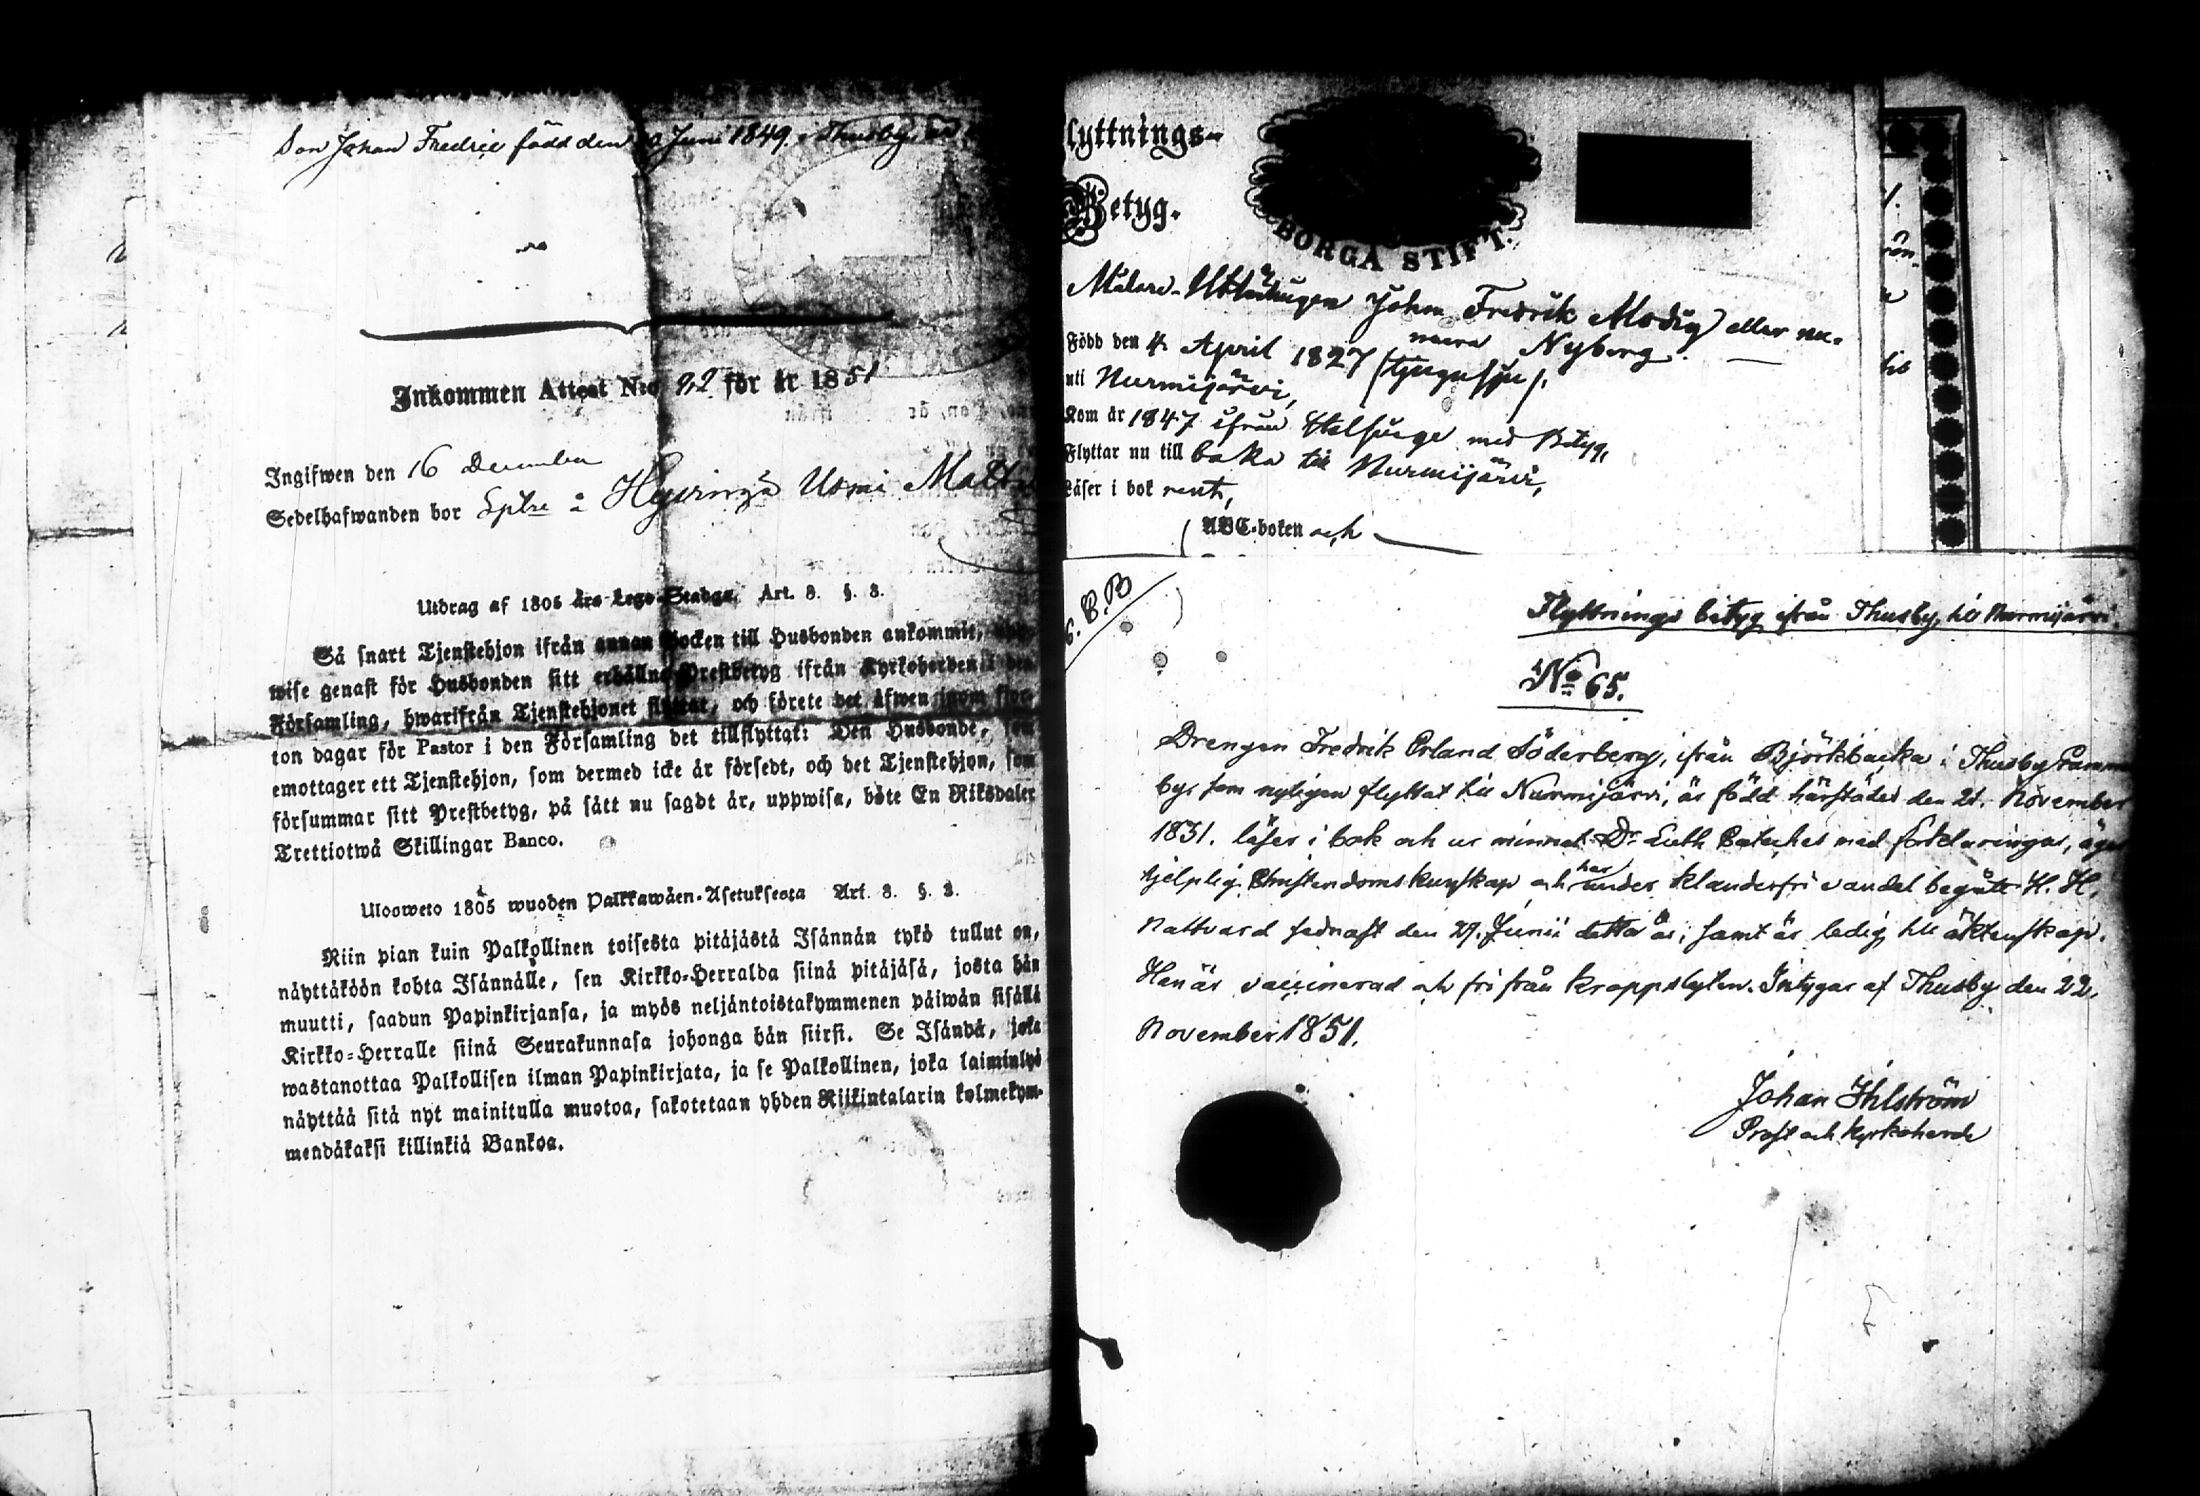 Son Johan Fredric född den Juni 1849 Thusby
Inkommen Attest N:o 92 för år 1851
Ingifwen den 16 December
Sedelhafwanden bor å Hyvinge Usmi Matt
Utdrag af 1805 års Lego-Stadga. Art. 8. §. 8.
Så snart Tjenstehjon ifrån annan Socken till Husbonden ankommit,
wise genast för Husbonden sitt erhållna Prestbetyg ifrån Kyrkoherden i den
Församling, hwarifrån Tjenstehjonet flyttat, och förete det äfwen inom fjor-
ton dagar för Pastor i den Församling det tillflyttat: Den Husbonde, som
emottager ett Tjenstehjon, som dermed icke är försedt, och det Tjenstehjon, som
försummar sitt Prestbetyg, på sätt nu sagdt är, uppwisa, böte En Riksdaler
Trettiotwå Skillingar Banco.
Ulosweto 1805 wuoden Palkkawäen-Asetuksesta Art. 8. §. 8.
Niin pian kuin Palkollinen toisesta pitäjästä Isännän tykö tullut on,
näyttäköön kohta Isännälle, sen Kirkko-Herralda siinä pitäjäsä, josta hän
muutti, saadun Papinkirjansa, ja myös neljäntoistakymmenen päiwän sisällä
Kirkko-Herralle siinä Seurakunnasa johonga hän siirsi. Se Isändä, joka
wastanottaa Palkollisen ilman Papinkirjata, ja se Palkollinen, joka laiminlyö
näyttää sitä nyt mainitulla muotoa, sakotetaan yhden Riikintalarin kolmekym-
mendäkaksi killinkiä Bankoa.
lyttnings-
Betyg.
BORGÅ STIFT.
Målare-Utlärlingen Johan Fredrik Modig eller nu-
mera Nyberg.
Född den 4. April 1827 /tjugusju/.
uti Nurmijärvi,
Kom år 1847 ifrån Helsinge med Betyg,
Flyttar nu till baka till Nurmijärvi,
Läser i bok rent,
ABC-boken och
Flyttnings betyg ifrån Thusby, till Nurmijärvi.
No 65.
Drengen Fredrik Erland Söderberg, ifrån Björkbacka i Thusby Pramm
by, som nyligen flyttat till Nurmijärvi, är född härstädes den 21. November
1831. läser i bok och ur minnet Dr Luth Cateches med förklaringar, äger
hjelplig Christendoms kunskap och har under klanderfri vandel begått H. H.
Nattvard sednast den 29. Junii detta år, samt är ledig till äktenskap.
Han är vaccinerad och fri från kroppslyten. Intygar af Thusby den 22.
November 1851.
Johan Ihlström
Prost och kyrkoherde